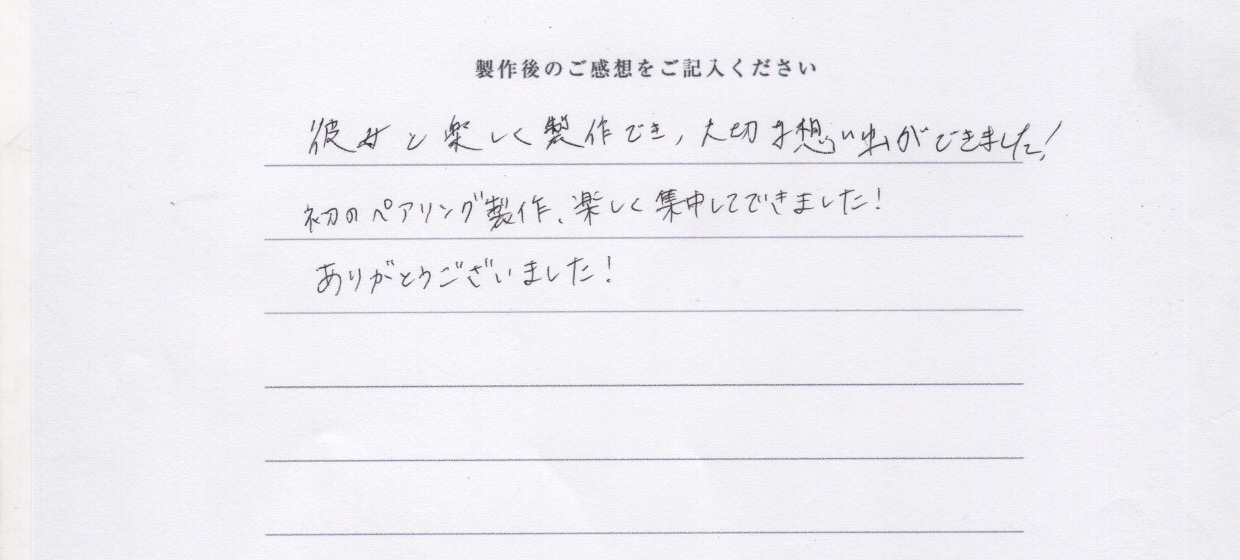 製作後のご感想をご記入ください
彼女と楽しく製作でき、大切な想い出ができました!
初のペアリング製作、楽しく集中してできました!
ありがとうございました!